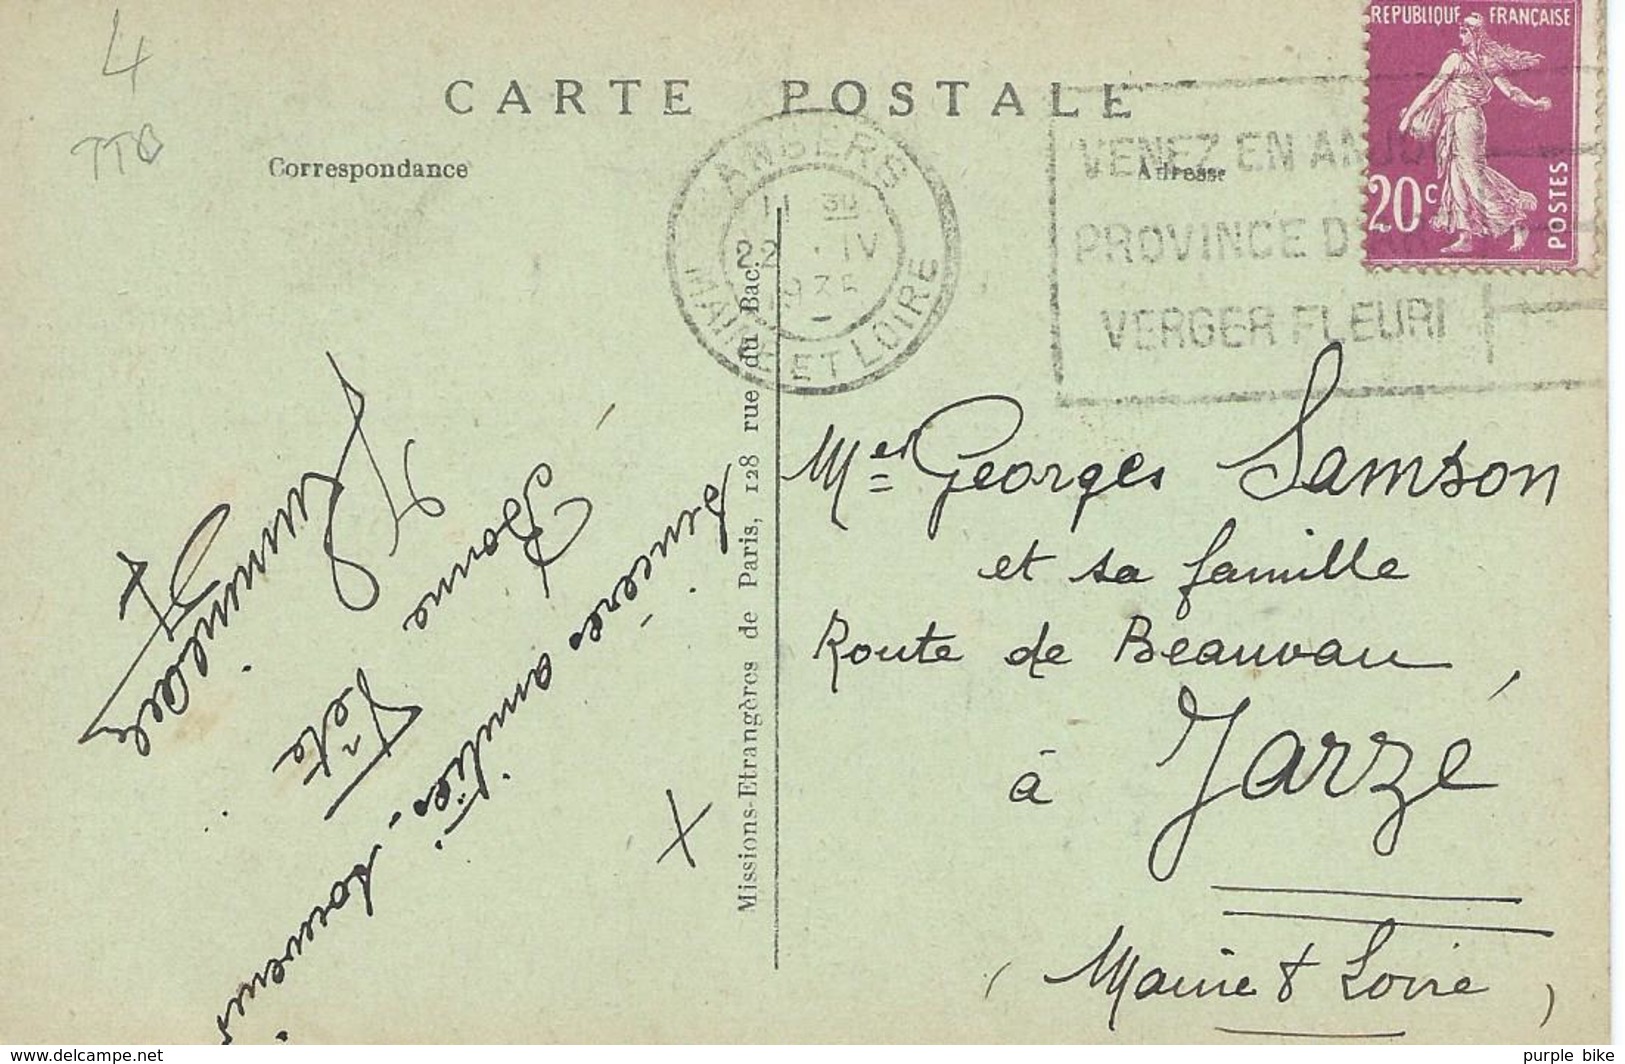 4
TTB
CARTE POSTALE
Correspondance
Adresse
REPUBLIQUE FRANÇAISE
20c
POSTES
ANGERS
11 30
22 · IV
MAINE ET LOIRE
VENEZ EN ANJOU
PROVINCE D'
VERGER FLEURI
Missions-Etrangères de Paris, 128 rue du Bac.
Sincères amitiés. Souvenir
Bonne
Fête
X
Mer Georges Samson
et sa famille
Route de Beauvau,
à Jarzé
(Maine & Loire)
purple bike